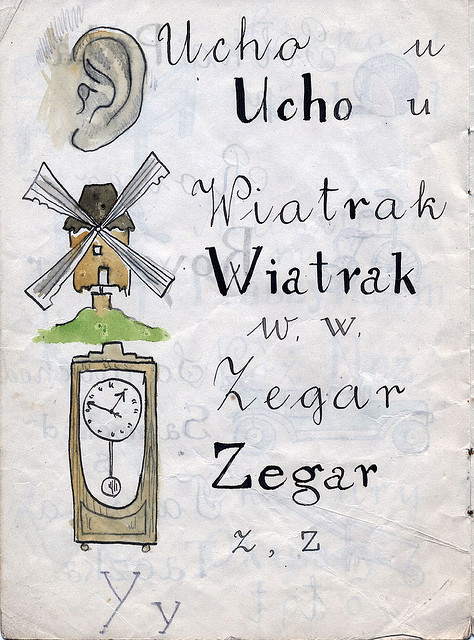 Ucho u
Ucho u
Wiatrak
Wiatrak
w. w.
Zegar
Zegar
z, z
Y y